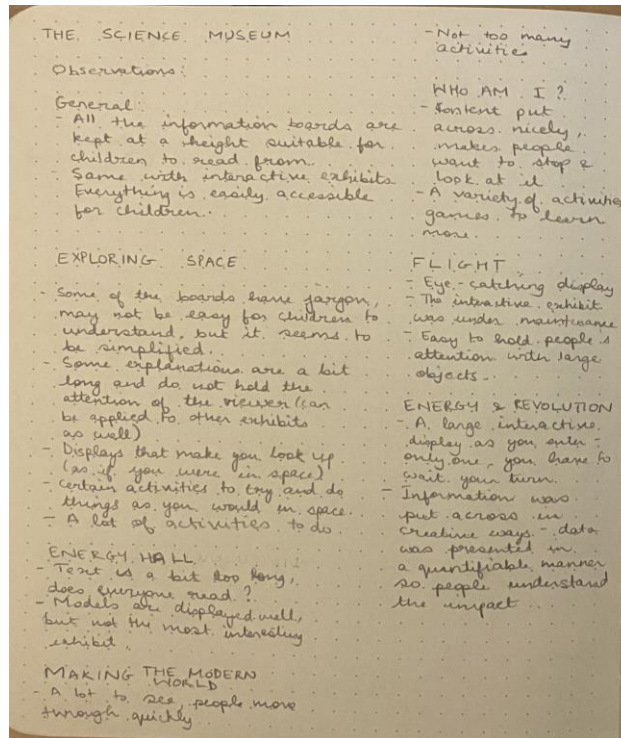 THE SCIENCE MUSEUM
Observations:
General:
- All the information boards are
kept at a height suitable for
children to read from.
- Same with interactive exhibits
Everything is easily accessible
for children.
EXPLORING SPACE
- Some of the boards have jargon,
may not be easy for children to
understand, but it seems to
be simplified.
- Some explanations are a bit
long and do not hold the
attention of the viewer (can
be applied to other exhibits
as well)
- Displays that make you look up
(as if you were in space)
- Certain activities to try and do
things as you would in space.
- A lot of activities to do
ENERGY HALL
- Text is a bit too long,
does everyone read?
- Models are displayed well,
but not the most interesting
exhibit.
MAKING THE MODERN
WORLD
- A lot to see, people move
through quickly
- Not too many
activities
WHO AM I?
- Content put
across nicely,
makes people
want to stop &
look at it
- A variety of activities
games to learn
more.
FLIGHT
- Eye-catching display
- The interactive exhibit
was under maintenance
- Easy to hold people's
attention with large
objects.
ENERGY & REVOLUTION
- A large interactive
display as you enter -
only one, you have to
wait your turn.
- Information was
put across in
creative ways - data
was presented in
a quantifiable manner
so people understand
the impact